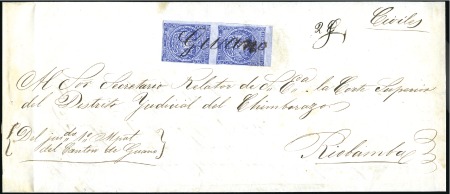 Civiles
Guano
M. Sor Secretario Relator de S. Eca. la Corte Superior
del Distrito Judicial del Chimborazo
Del juzdo. 1o. Mpal.
del Canton de Guano
Riobamba